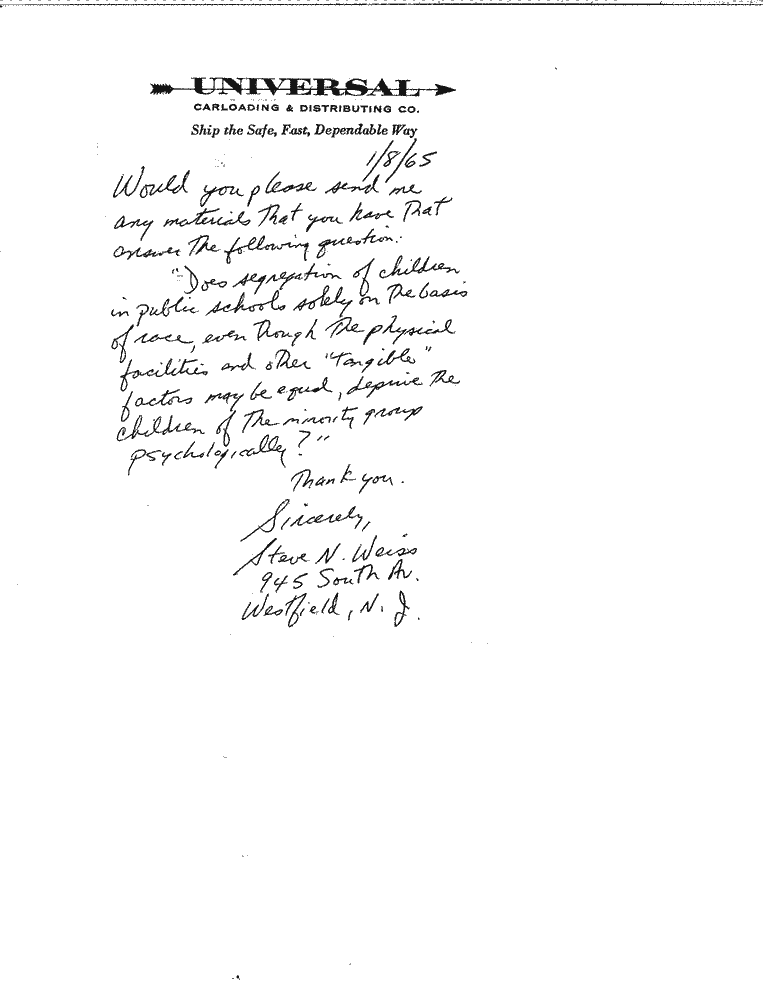 UNIVERSAL
CARLOADING & DISTRIBUTING CO.
Ship the Safe, Fast, Dependable Way
1/8/65
Would you please send me
any materials that you have that
answer the following question:
"Does segregation of children
in public schools solely on the basis
of race, even though the physical
facilities and other "tangible"
factors may be equal, deprive the
children of the minority group
psychologically?"
Thank you.
Sincerely,
Steve N. Weiss
945 South Av.
Westfield, N. J.